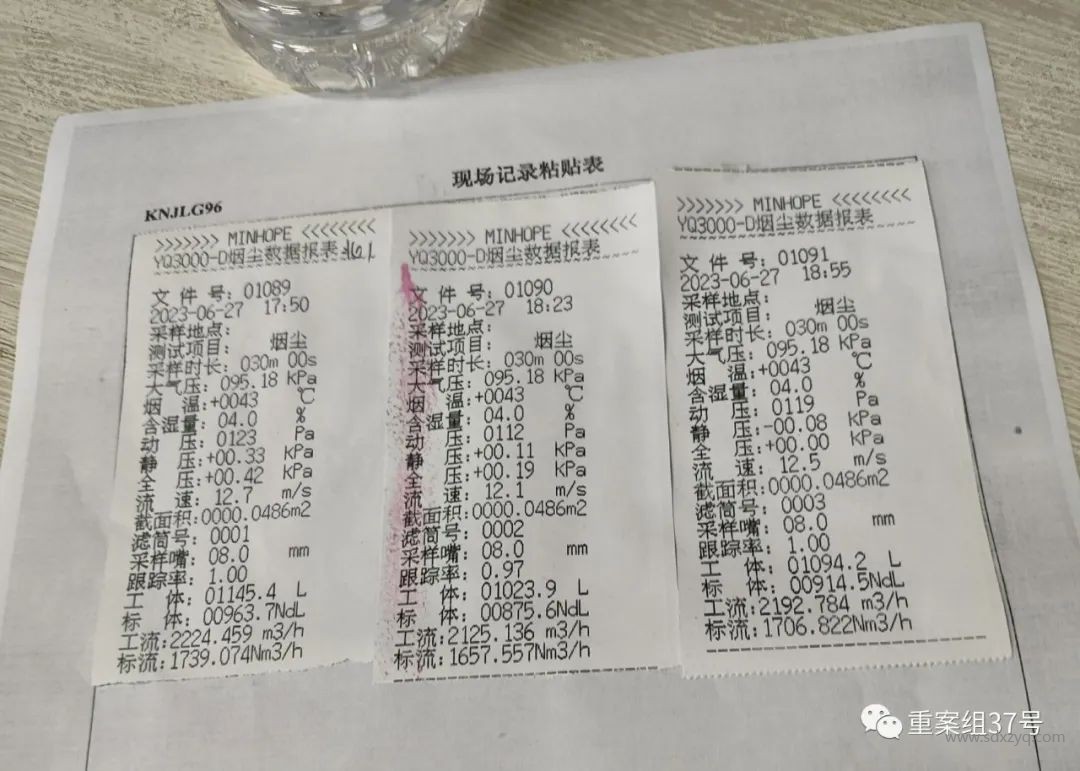 现场记录粘贴表
KNJLG96
>>>>>>> MINHOPE <<<<<<<<
YQ3000-D烟尘数据报表
文 件 号: 01089
2023-06-27 17:50
采样地点:
测试项目: 烟尘
采样时长: 030m 00s
大气压: 095.18 KPa
烟 温: +0043 ℃
含湿量: 04.0 %
动 压: 0123 Pa
静 压: +00.33 KPa
全 压: +00.42 KPa
流 速: 12.7 m/s
截面积: 0000.0486m2
滤筒号: 0001
采样嘴: 08.0 mm
跟踪率: 1.00
工 体: 01145.4 L
标 体: 00963.7NdL
工流:2224.459 m3/h
标流:1739.074Nm3/h
>>>>>>> MINHOPE <<<<<<<<
YQ3000-D烟尘数据报表
文 件 号: 01090
2023-06-27 18:23
采样地点:
测试项目: 烟尘
采样时长: 030m 00s
大气压: 095.18 KPa
烟 温: +0043 ℃
含湿量: 04.0 %
动 压: 0112 Pa
静 压: +00.11 KPa
全 压: +00.19 KPa
流 速: 12.1 m/s
截面积: 0000.0486m2
滤筒号: 0002
采样嘴: 08.0 mm
跟踪率: 0.97
工 体: 01023.9 L
标 体: 00875.6NdL
工流:2125.136 m3/h
标流:1657.557Nm3/h
>>>>>>> MINHOPE <<<<<<<<
YQ3000-D烟尘数据报表
文 件 号: 01091
2023-06-27 18:55
采样地点:
测试项目: 烟尘
采样时长: 030m 00s
大气压: 095.18 KPa
烟 温: +0043 ℃
含湿量: 04.0 %
动 压: 0119 Pa
静 压: -00.08 KPa
全 压: +00.00 KPa
流 速: 12.5 m/s
截面积: 0000.0486m2
滤筒号: 0003
采样嘴: 08.0 mm
跟踪率: 1.00
工 体: 01094.2 L
标 体: 00914.5NdL
工流:2192.784 m3/h
标流:1706.822Nm3/h
重案组37号
www.sdxzyq.com